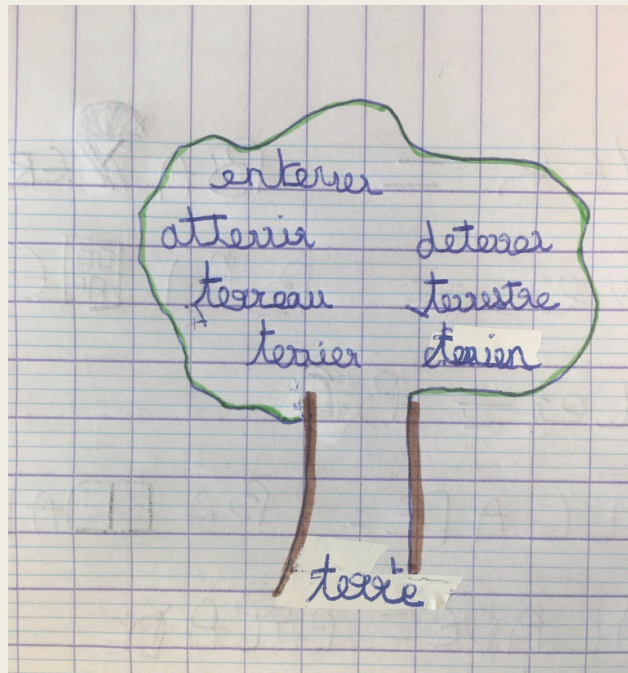 enterrer
atterrir deterrer
terreau terrestre
terrier terrien
terre